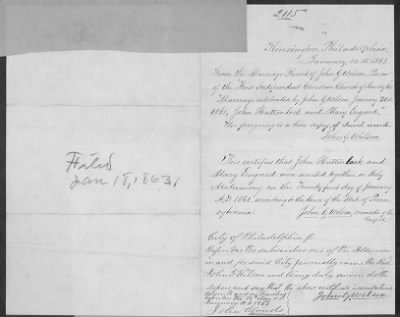 2115
Kensington Philadelphia
January 10th 1863
From the Marriage Record of John G Wilson, Pastor
of the First Independent Christian Church of
"Marriage celebrated by John G Wilson January 21st
1861, John Hattenlock and Mary Engard"
The foregoing is a true copy of church record.
John G. Wilson
This certifies that John Hattenlock and
Mary Engard were united together in Holy
Matrimony on the Twenty first day of January
A.D. 1861 according to the laws of the State of Penn
sylvania. John G Wilson, minister of the
Gospel
City of Philadelphia
Before me the subscriber one of the Aldermen
in and for said City personally came the Rev.
John G Wilson and being duly sworn doth
depose and say that the above certificate is
John G Wilson
John
Filed
Jan 18, 1863